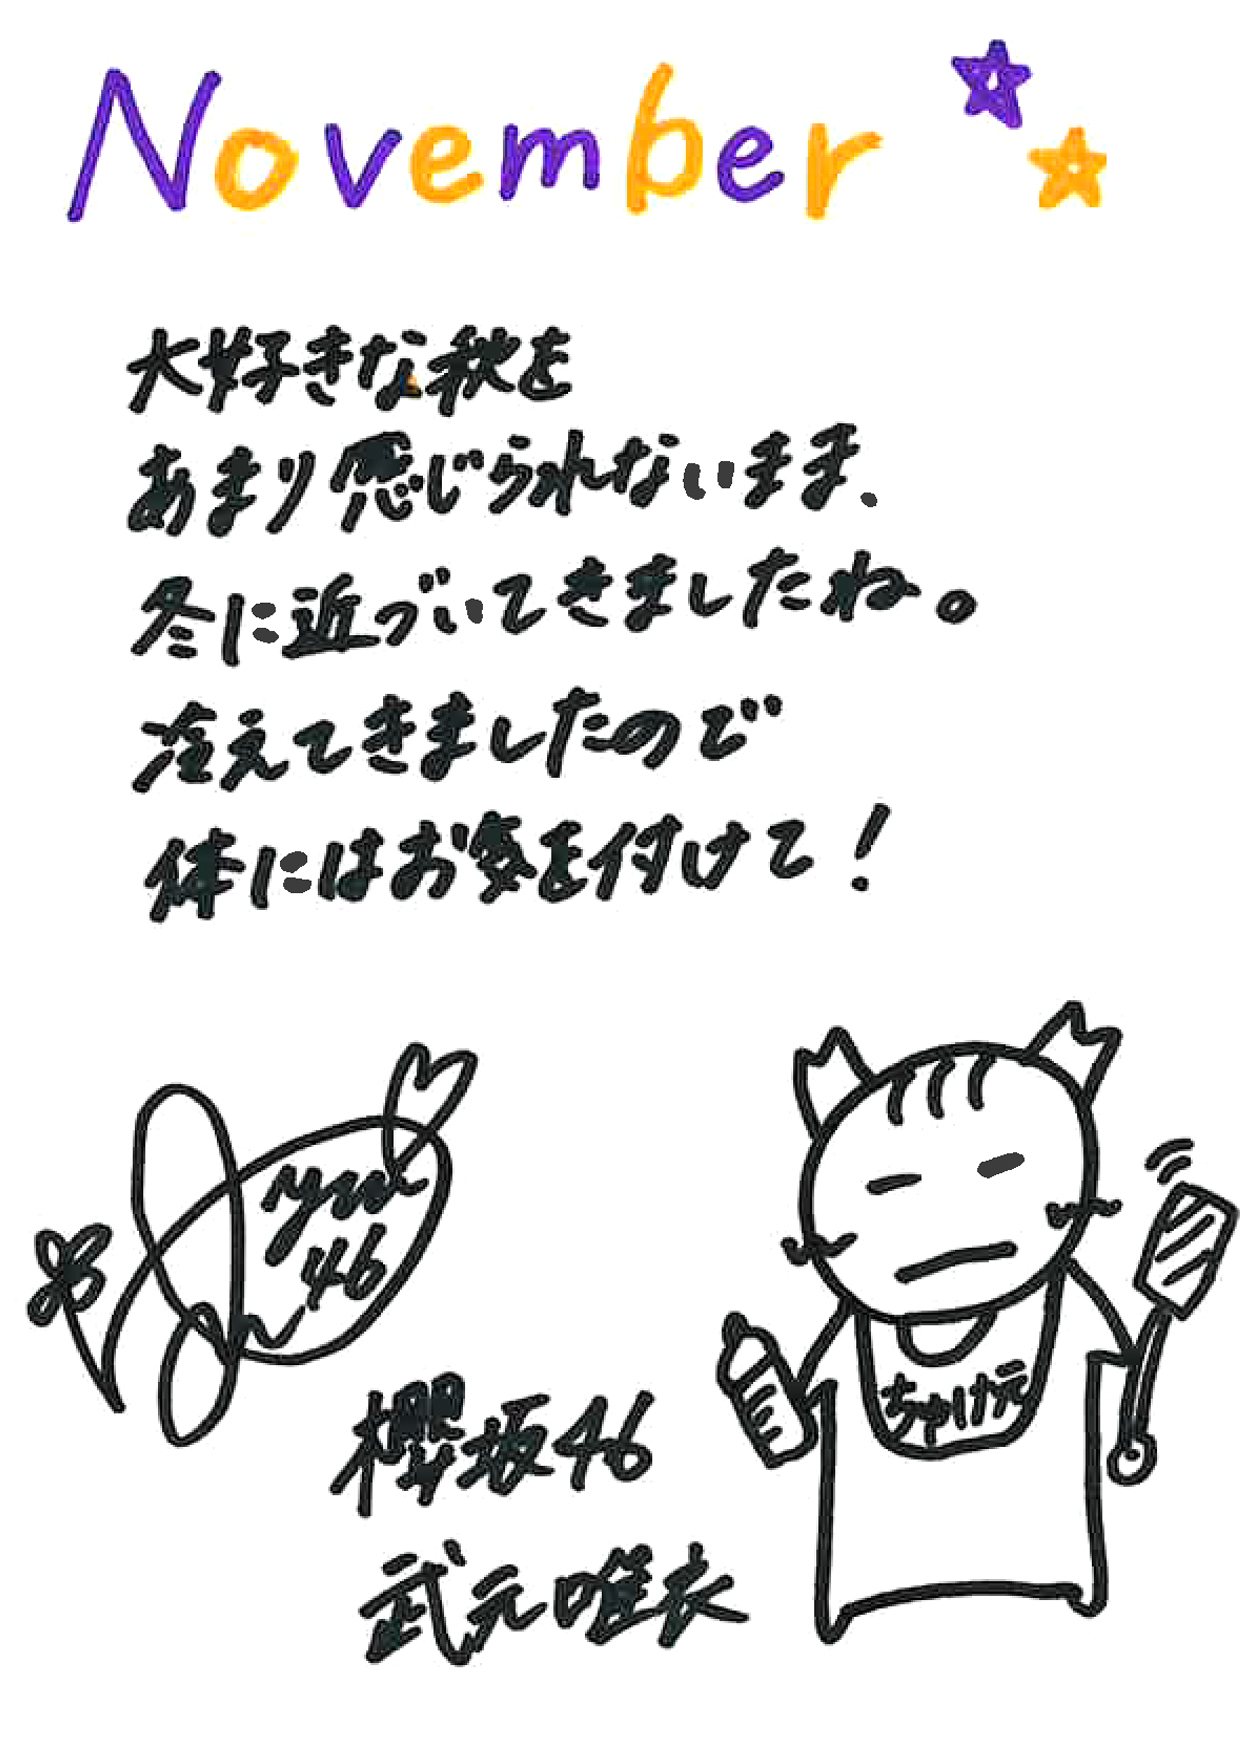 November
大好きな秋を
あまり感じられないまま、
冬に近づいてきましたね。
冷えてきましたので
体にはお気を付けて！
46
ちゃけ元
櫻坂46
武元唯衣